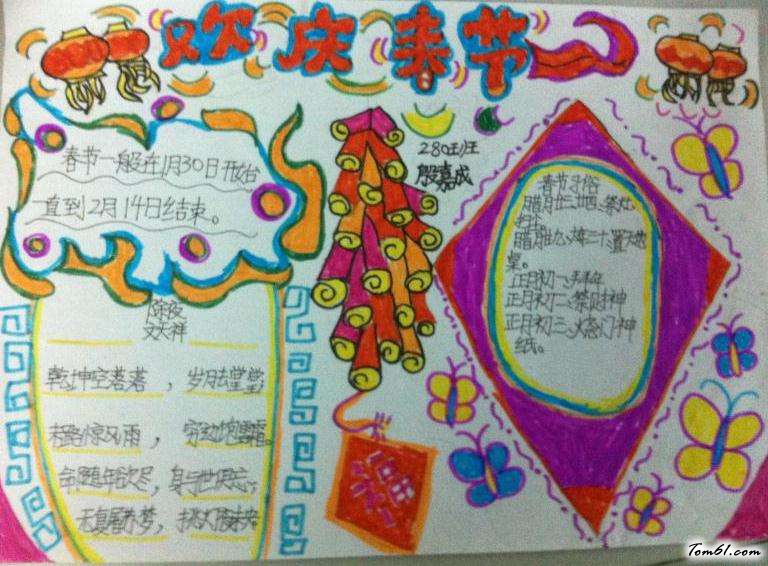 欢庆春节
春节一般在1月30日开始
直到2月14日结束。
280班
殷嘉成
除夜
文天祥
乾坤空落落，岁月去堂堂
末路惊风雨，穷边饱雪霜。
命随年欲尽，身与世俱忘；
无复屠苏梦，挑灯夜未央
春节习俗
腊月廿三、廿四、祭灶
扫尘
腊月廿九、三十、置天地
桌。
正月初一、拜年
正月初二、祭财神
正月初三、烧门神
纸。
Tom61.com